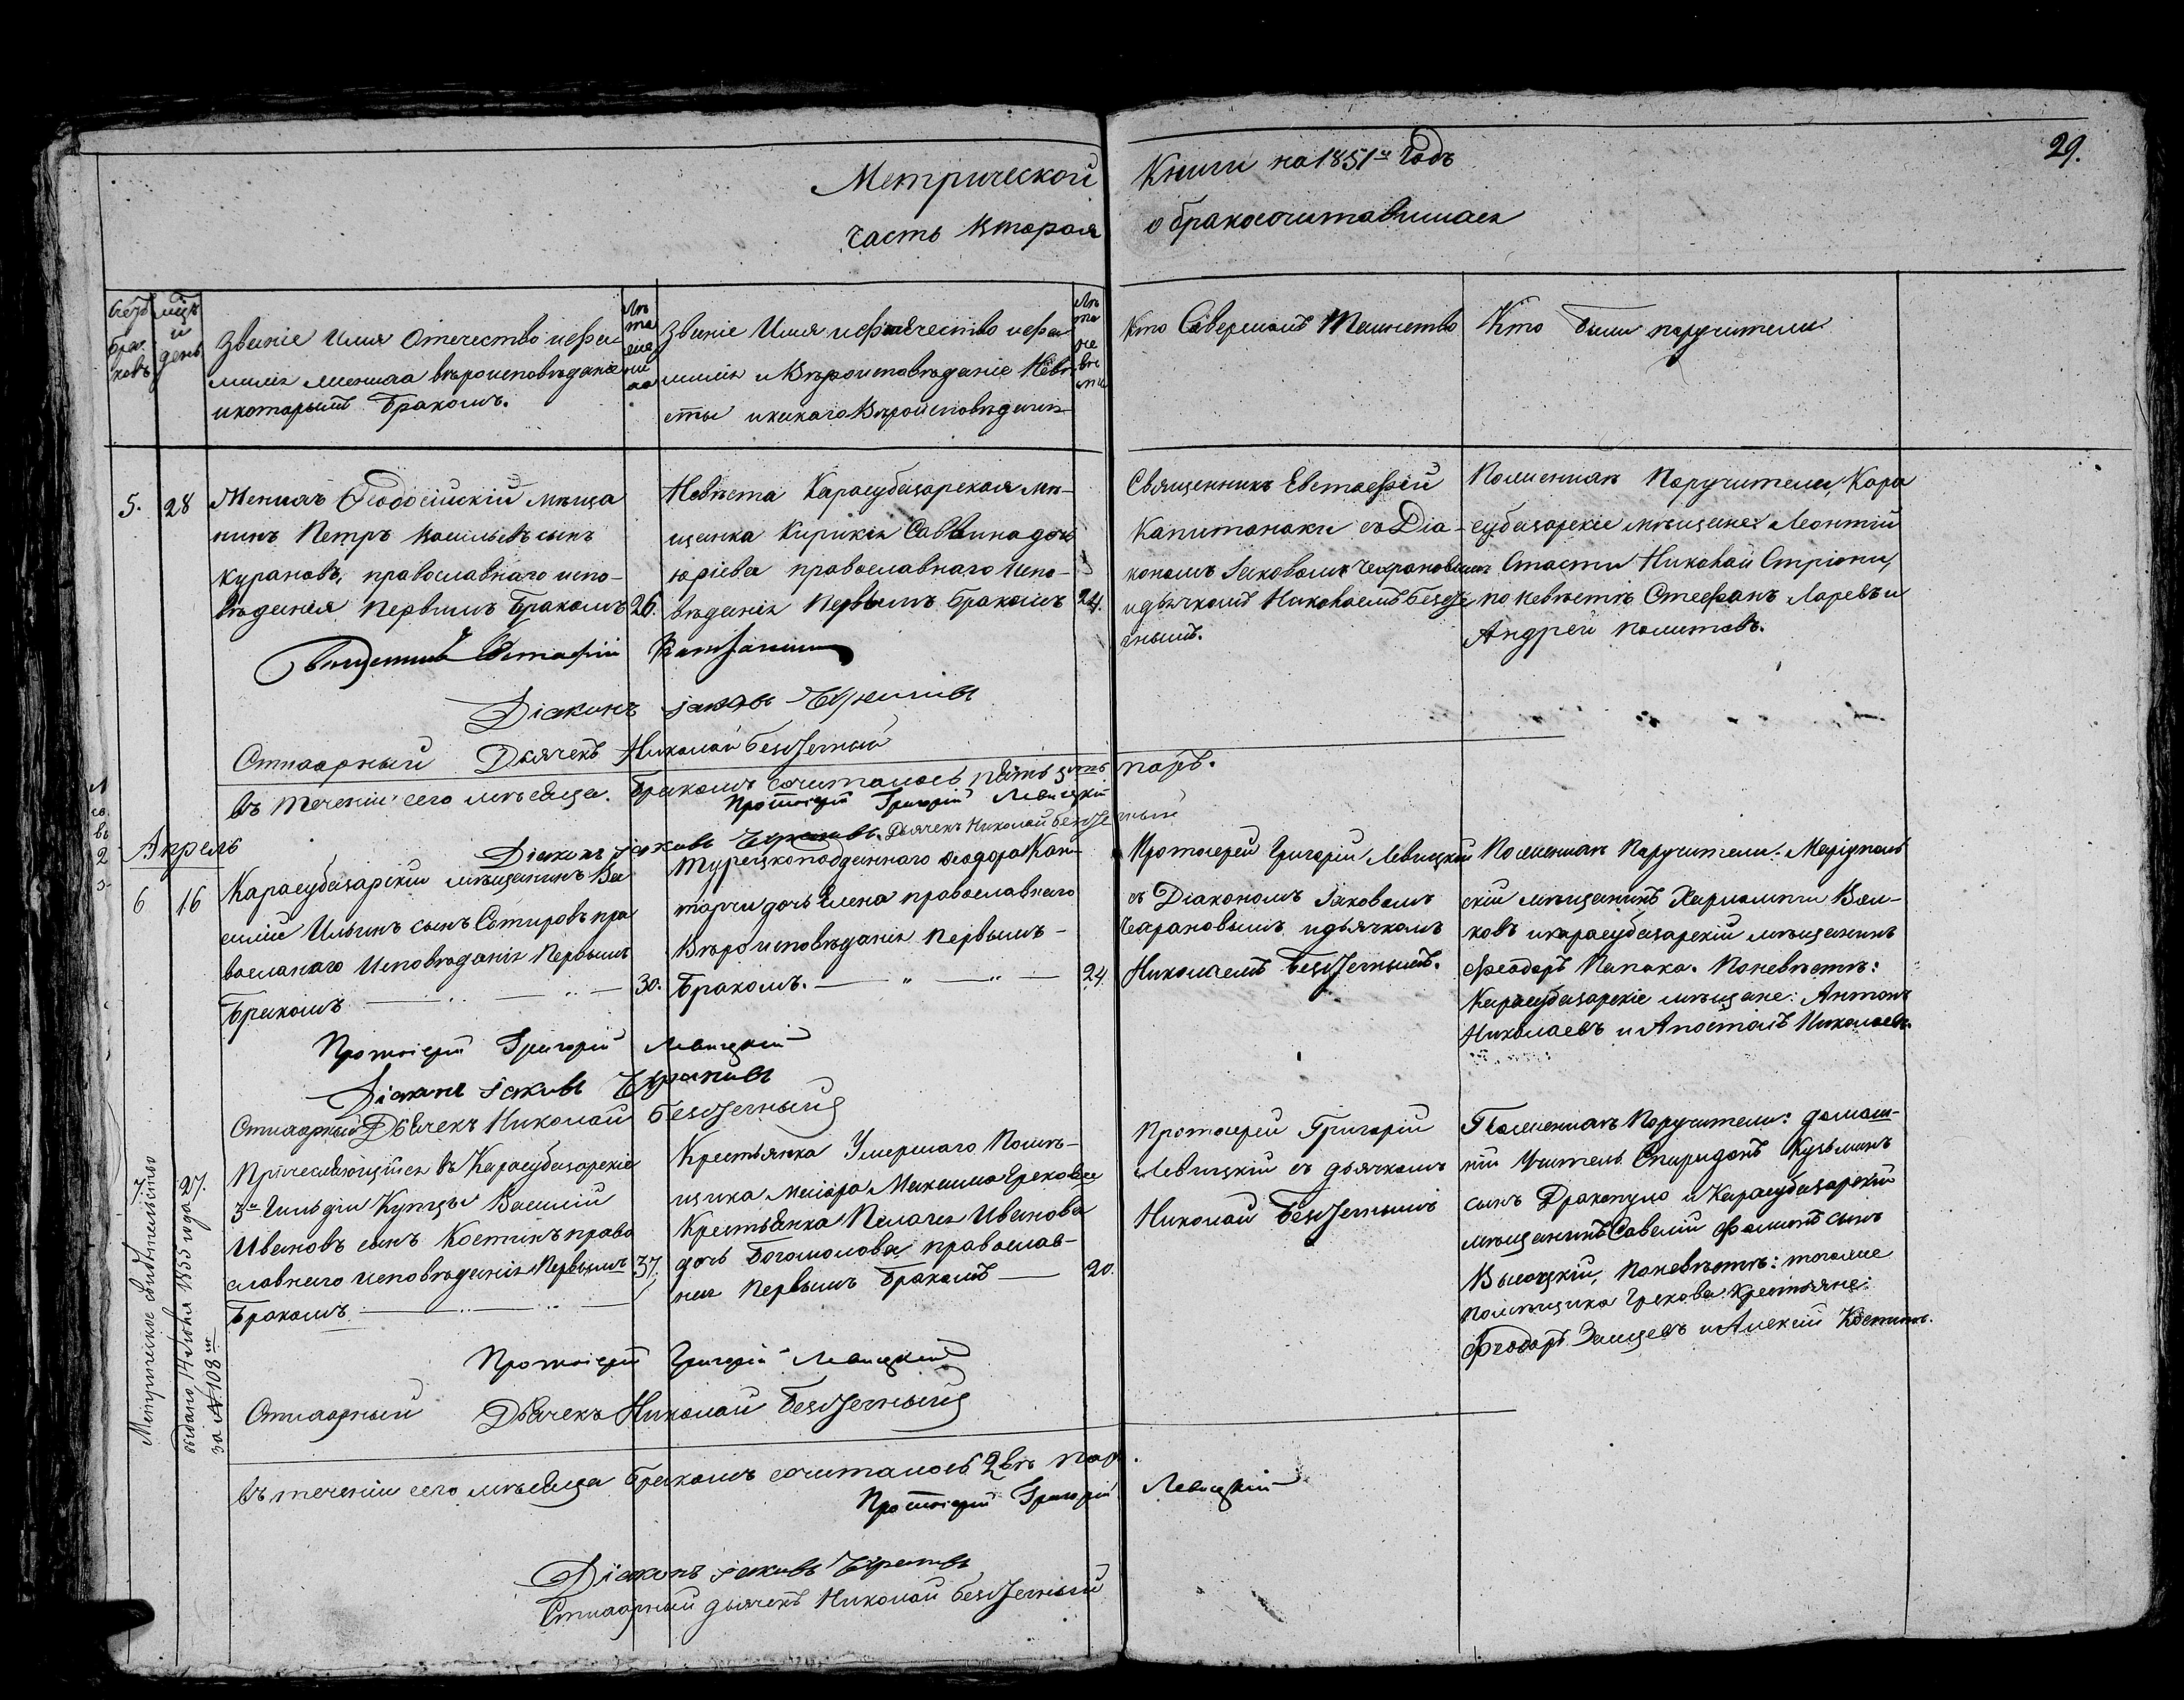 Метрической Книги на 1851й Годъ
29.
часть вторая о бракосочитавшихся
Счетъ браковъ
мцъ и день
Званіе Имя Отечество и фа-
миліи жениха вѣроисповѣданіе
и которымъ бракомъ.
Лѣта жениха
Званіе Имя и Отечество и фа-
миліи и Вѣроисповѣданіе Невѣ-
сты и какаго Вѣроисповѣданія
Лѣта невѣсты
Кто Совершалъ Таинство
Кто были поручители
5.
28
Женихъ Ѳеодосійскій мѣща
нинъ Петръ Васильевъ сынъ
Курановъ, православнаго испо-
вѣданія Первымъ Бракомъ
26.
Невѣста Карасубазарская мѣ-
щанка Кирикія Саввина дочь
Юріева православнаго Испо-
вѣданія Первымъ бракомъ
24.
Священникъ Евстафій
Капитанаки съ Діа-
кономъ Іаковомъ
и дьячкомъ Николаемъ Безсче
тнымъ.
По женихѣ Поручители, Кара
субазарскіе мѣщане: Леонтій
Спасти Николай Стріони,
по невѣстѣ Стефанъ Ларевъ и
Андрей Политовъ.
Священникъ Евстафій Капитанаки
Діаконъ Іаковъ
Стихарный Дьячекъ Николай безсчетный
въ теченіи сего мѣсяца. бракомъ сочиталось пять паръ.
Протоіерей Григорій Левицкій
Діаконъ Іаковъ Дьячекъ Николай безсчетный
Апрель
6
16
Карасубазарскій мѣщанинъ Ва
силій Ильинъ сынъ Сотировъ пра
вославнаго Исповѣданія Первымъ
Бракомъ
30.
Турецкоподданнаго Ѳеодора Кан-
тарчи дочь Елена православнаго
Вѣроисповѣданія Первымъ-
Бракомъ.
24.
Протоіерей Григорій Левицкій
съ Діакономъ Іаковомъ
и дьячкомъ
Николаемъ Безсчетнымъ.
По женихѣ Поручители: Маріуполь
скій мѣщанинъ Харлампій Вол-
ковъ и карасубазарскій мѣщанинъ
Феодоръ Папака. По невѣстѣ:
Карасубазарскіе мѣщане: Антонъ
Николаевъ и Апостолъ Николаевъ.
Протоіерей Григорій Левицкій
Діаконъ Іаковъ
Стихарный Дьячекъ Николай безсчетный
7.
27.
Метрическое свидѣтельство
выдано, 14 Іюня 1855 года
за № 108м
Причисляющійся въ Карасубазарскіе
3й Гильдіи Купцы Василій
Ивановъ сынъ Костинъ право
славнаго исповѣданія Первымъ
Бракомъ
37.
Крестьянка Умершаго Помѣ-
щика Маіора Максима Грекова
Крестьянка Пелагія Иванова
дочь Богомолова православ-
ная Первымъ Бракомъ
20.
Протоіерей Григорій
Левицкій съ дьячкомъ
Николай Безсчетнымъ
По женихѣ Поручители: домаш-
ній Учитель Спиридонъ Кузьминъ
сынъ Дракопуло и Карасубазарскій
мѣщанинъ Савелій Фоминъ сынъ
Высоцкій, По невѣстѣ: тогоже
Помѣщика Грекова Крестьяне:
Феодоръ Зайцевъ и Алексій Костинъ.
Протоіерей Григорій Левицкій
Стихарный Дьячекъ Николай Безсчетный
Въ теченіи сего мѣсяца бракомъ сочиталось 2вѣ пары.
Протоіерей Григорій Левицкій
Діаконъ Іаковъ
Стихарный дьячекъ Николай безсчетный